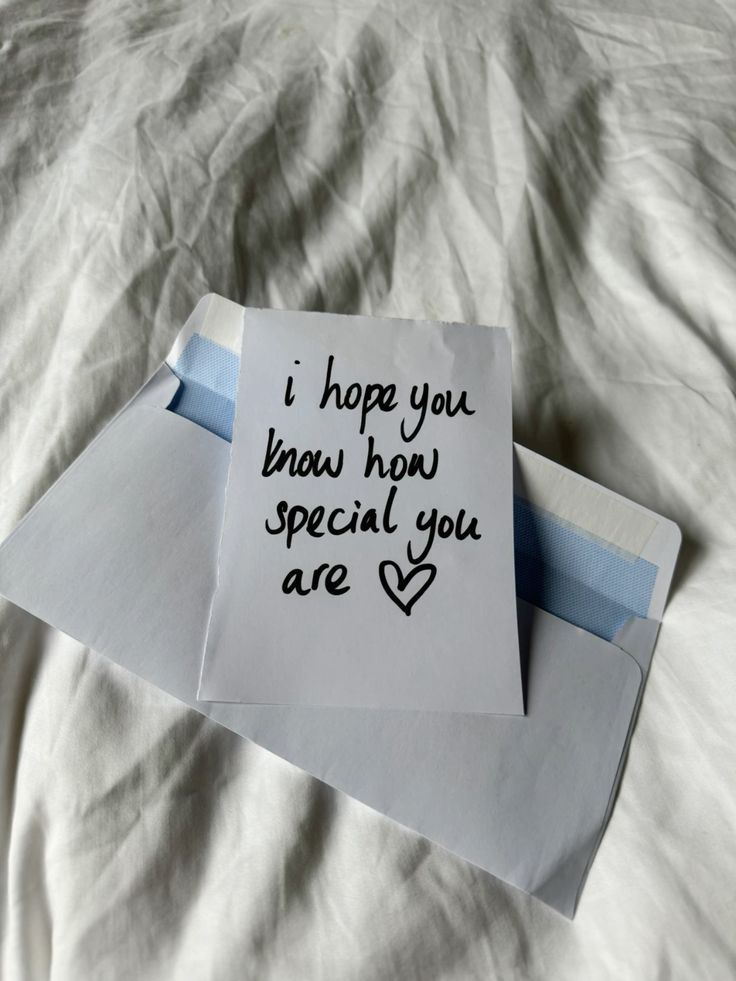 i hope you
know how
special you
are ♡